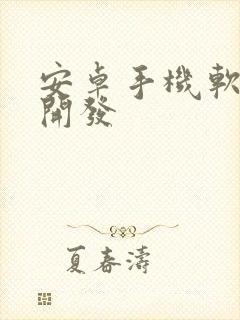 安卓手機軟
開發
夏春濤